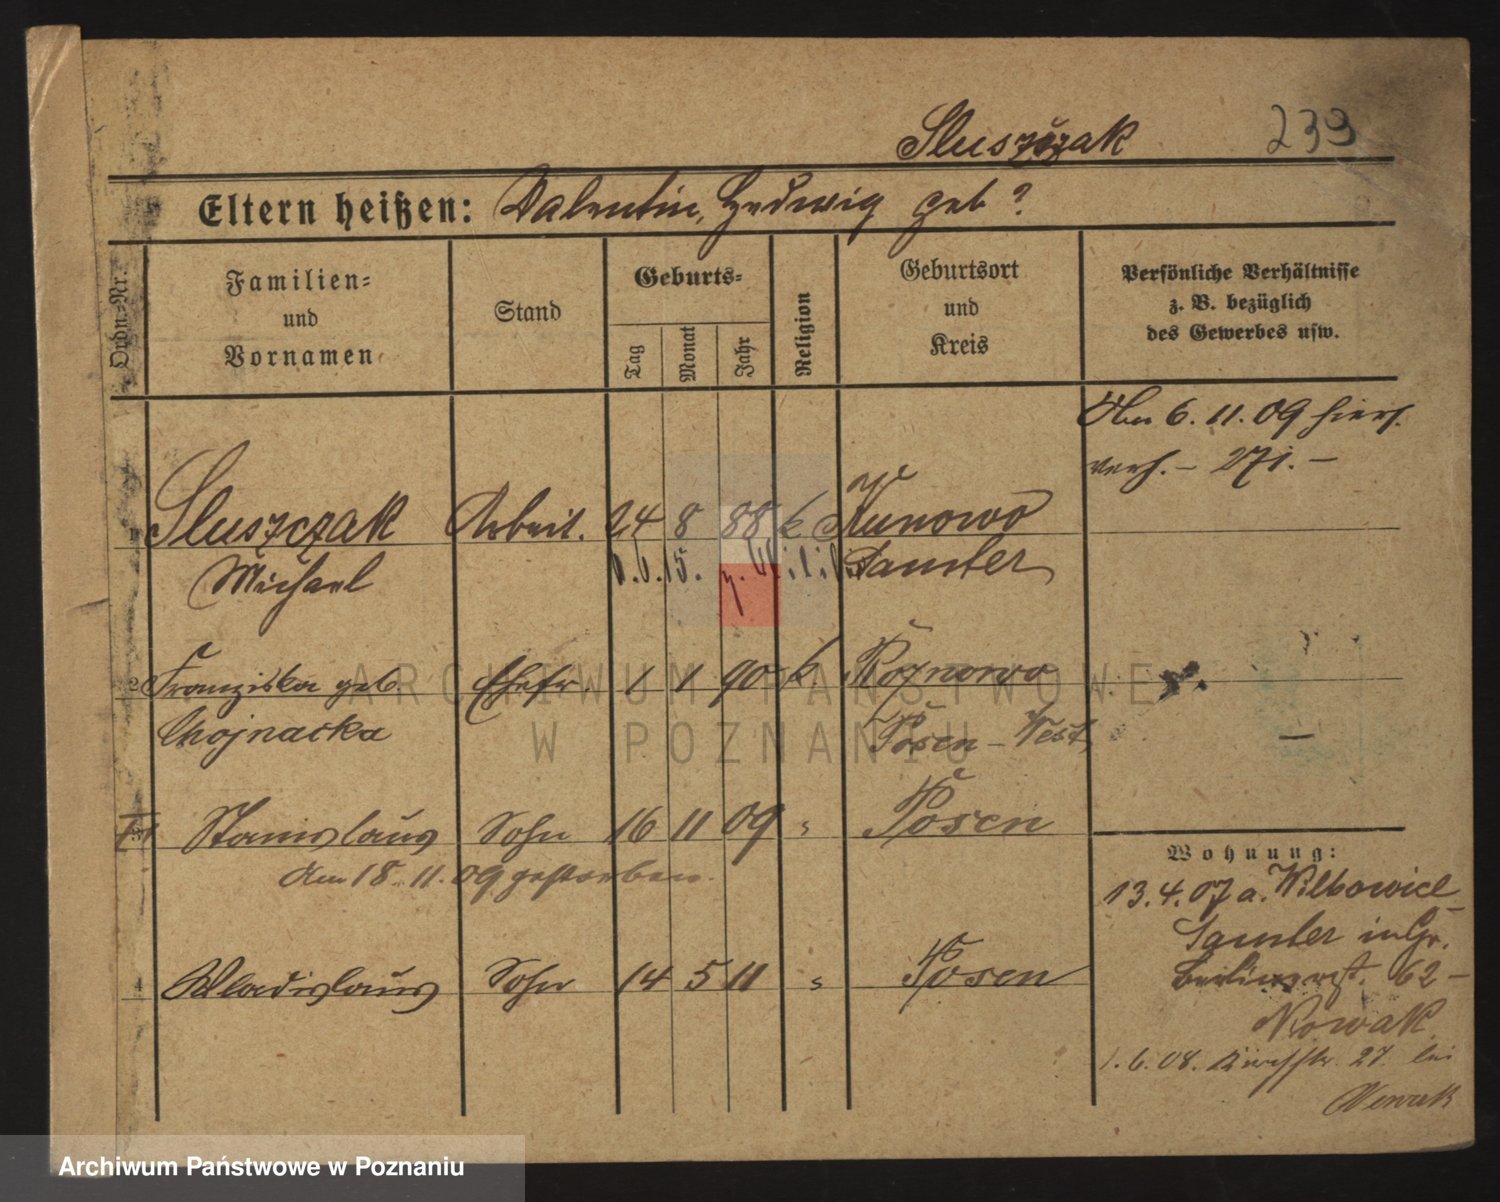 Sluszczak 239
Eltern heißen: Valentin, Hedwig geb ?
Ordn.-Nr.
Familien-
und
Vornamen
Stand
Geburts-
Tag
Monat
Jahr
Religion
Geburtsort
und
Kreis
Persönliche Verhältnisse
z. B. bezüglich
des Gewerbes usw.
6. 11. 09 hiers.
verh. – 271. –
Sluszczak Arbeit. 24 8 88 k Kunowo
Michael 6. 15. z. Samter
2 Franziska geb. Ehefr. 1 1 90 k Rożnowo
Chojnacka Posen – West
Stanislaus Sohn 16 11 09 " Posen
Am 18. 11. 09 gestorben.
Wohnung:
13. 4. 07 a.
Samter in Gr.
Berlinerst. 62 –
Nowak
4 Wladislaus Sohn 14 5 11 " Posen
1. 6. 08. 27 bei
Nowak
ARCHIWUM PAŃSTWOWE
W POZNANIU
Archiwum Państwowe w Poznaniu